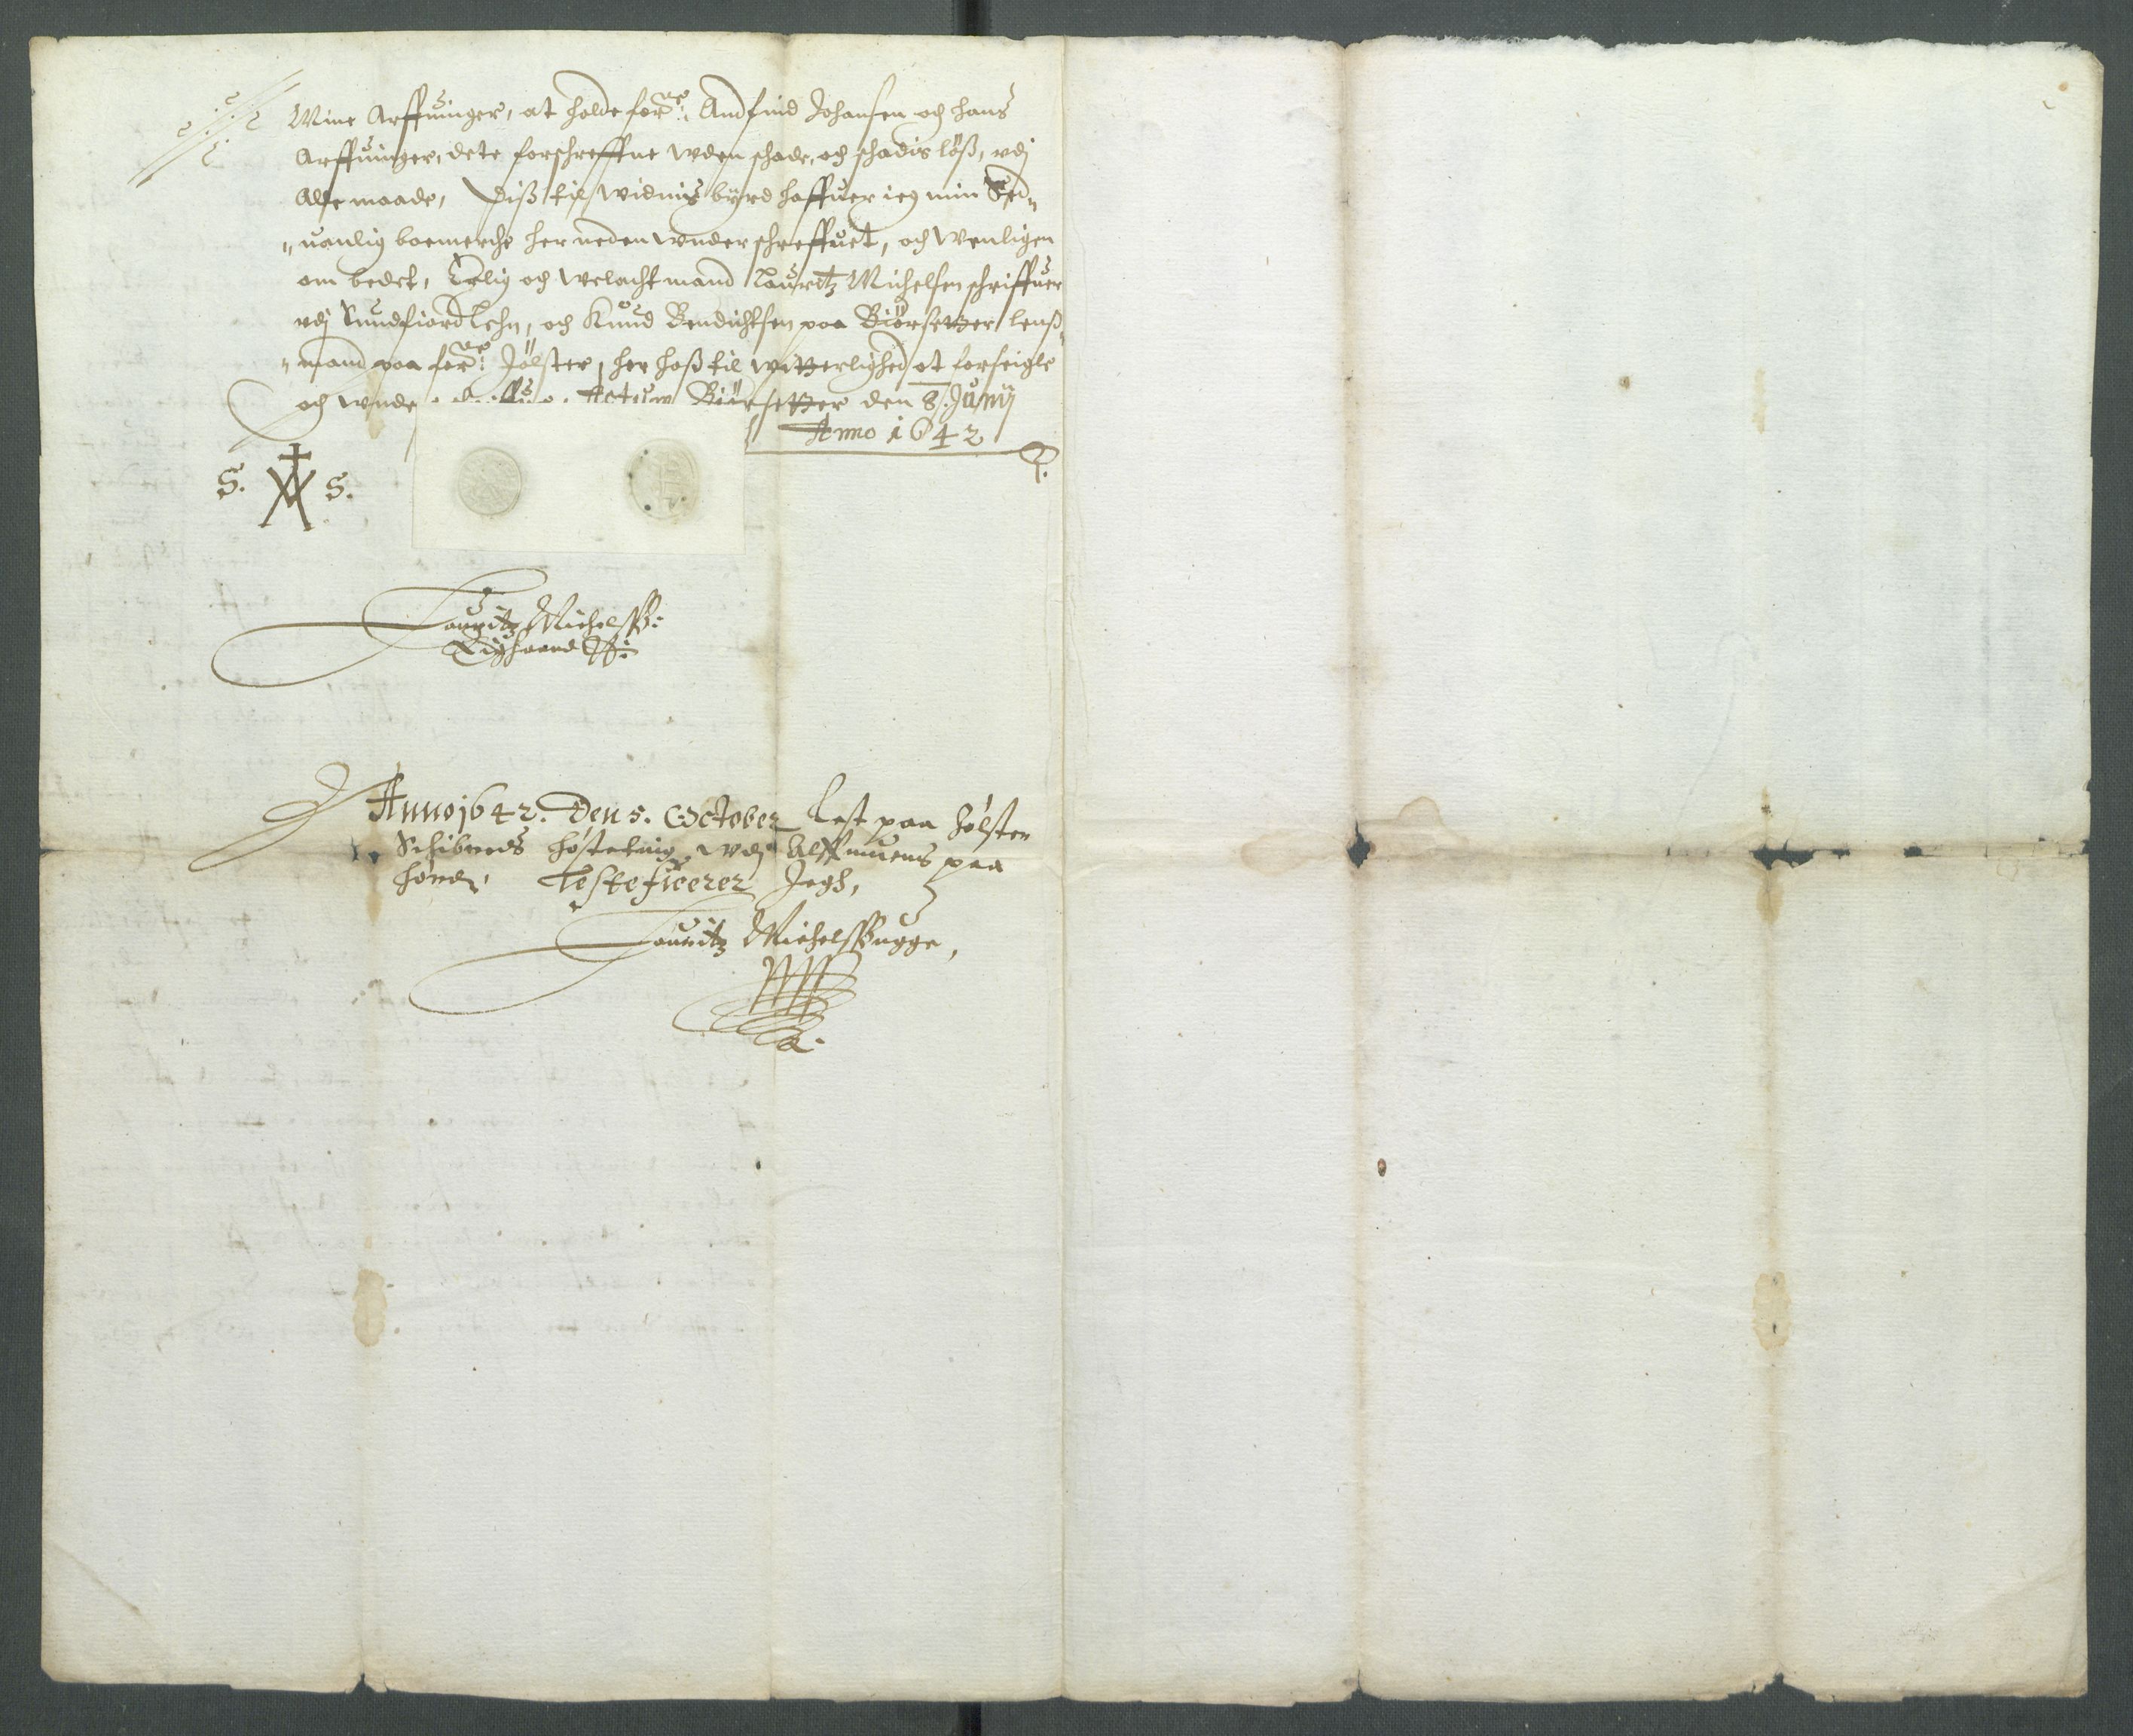 Mine Arffuinger, at holde forne: Andfind Johansen och hans
Arffuinger, dete forschreffne uden schade, och schadis löß, udj
Alle maade, Diß til widnisbyrd haffuer ieg min Sed„
„uanlig boemerche her neden wnderschreffuet, och wenligen
om bedet, Erlig och welacht mand Lauritz Michelsen schriffuer
udj Sundfiord Lehn, och Knud Bendichtsen paa Biörsetter lenß„
„mand paa forne: Jölster, her hoß til witterlighed at forseigle
och wnde Actum Biörsetter den 8. Junij
Anno 1642
S. S.
Lauritz Michelß:
Eighaand
Anno 1642. Den 5. October Lest paa Jölster
Schibreds höste ting, wdj Allmuens paa
hörelse, Testeficerer Jegh,
Lauritz Michelß Bugge,